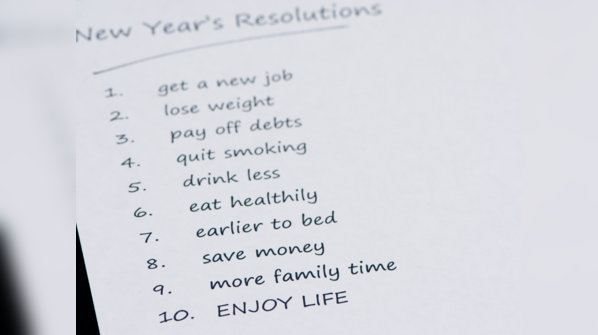 New Year's Resolutions
1. get a new job
2. lose weight
3. pay off debts
4. quit smoking
5. drink less
6. eat healthily
7. earlier to bed
8. save money
9. more family time
10. ENJOY LIFE